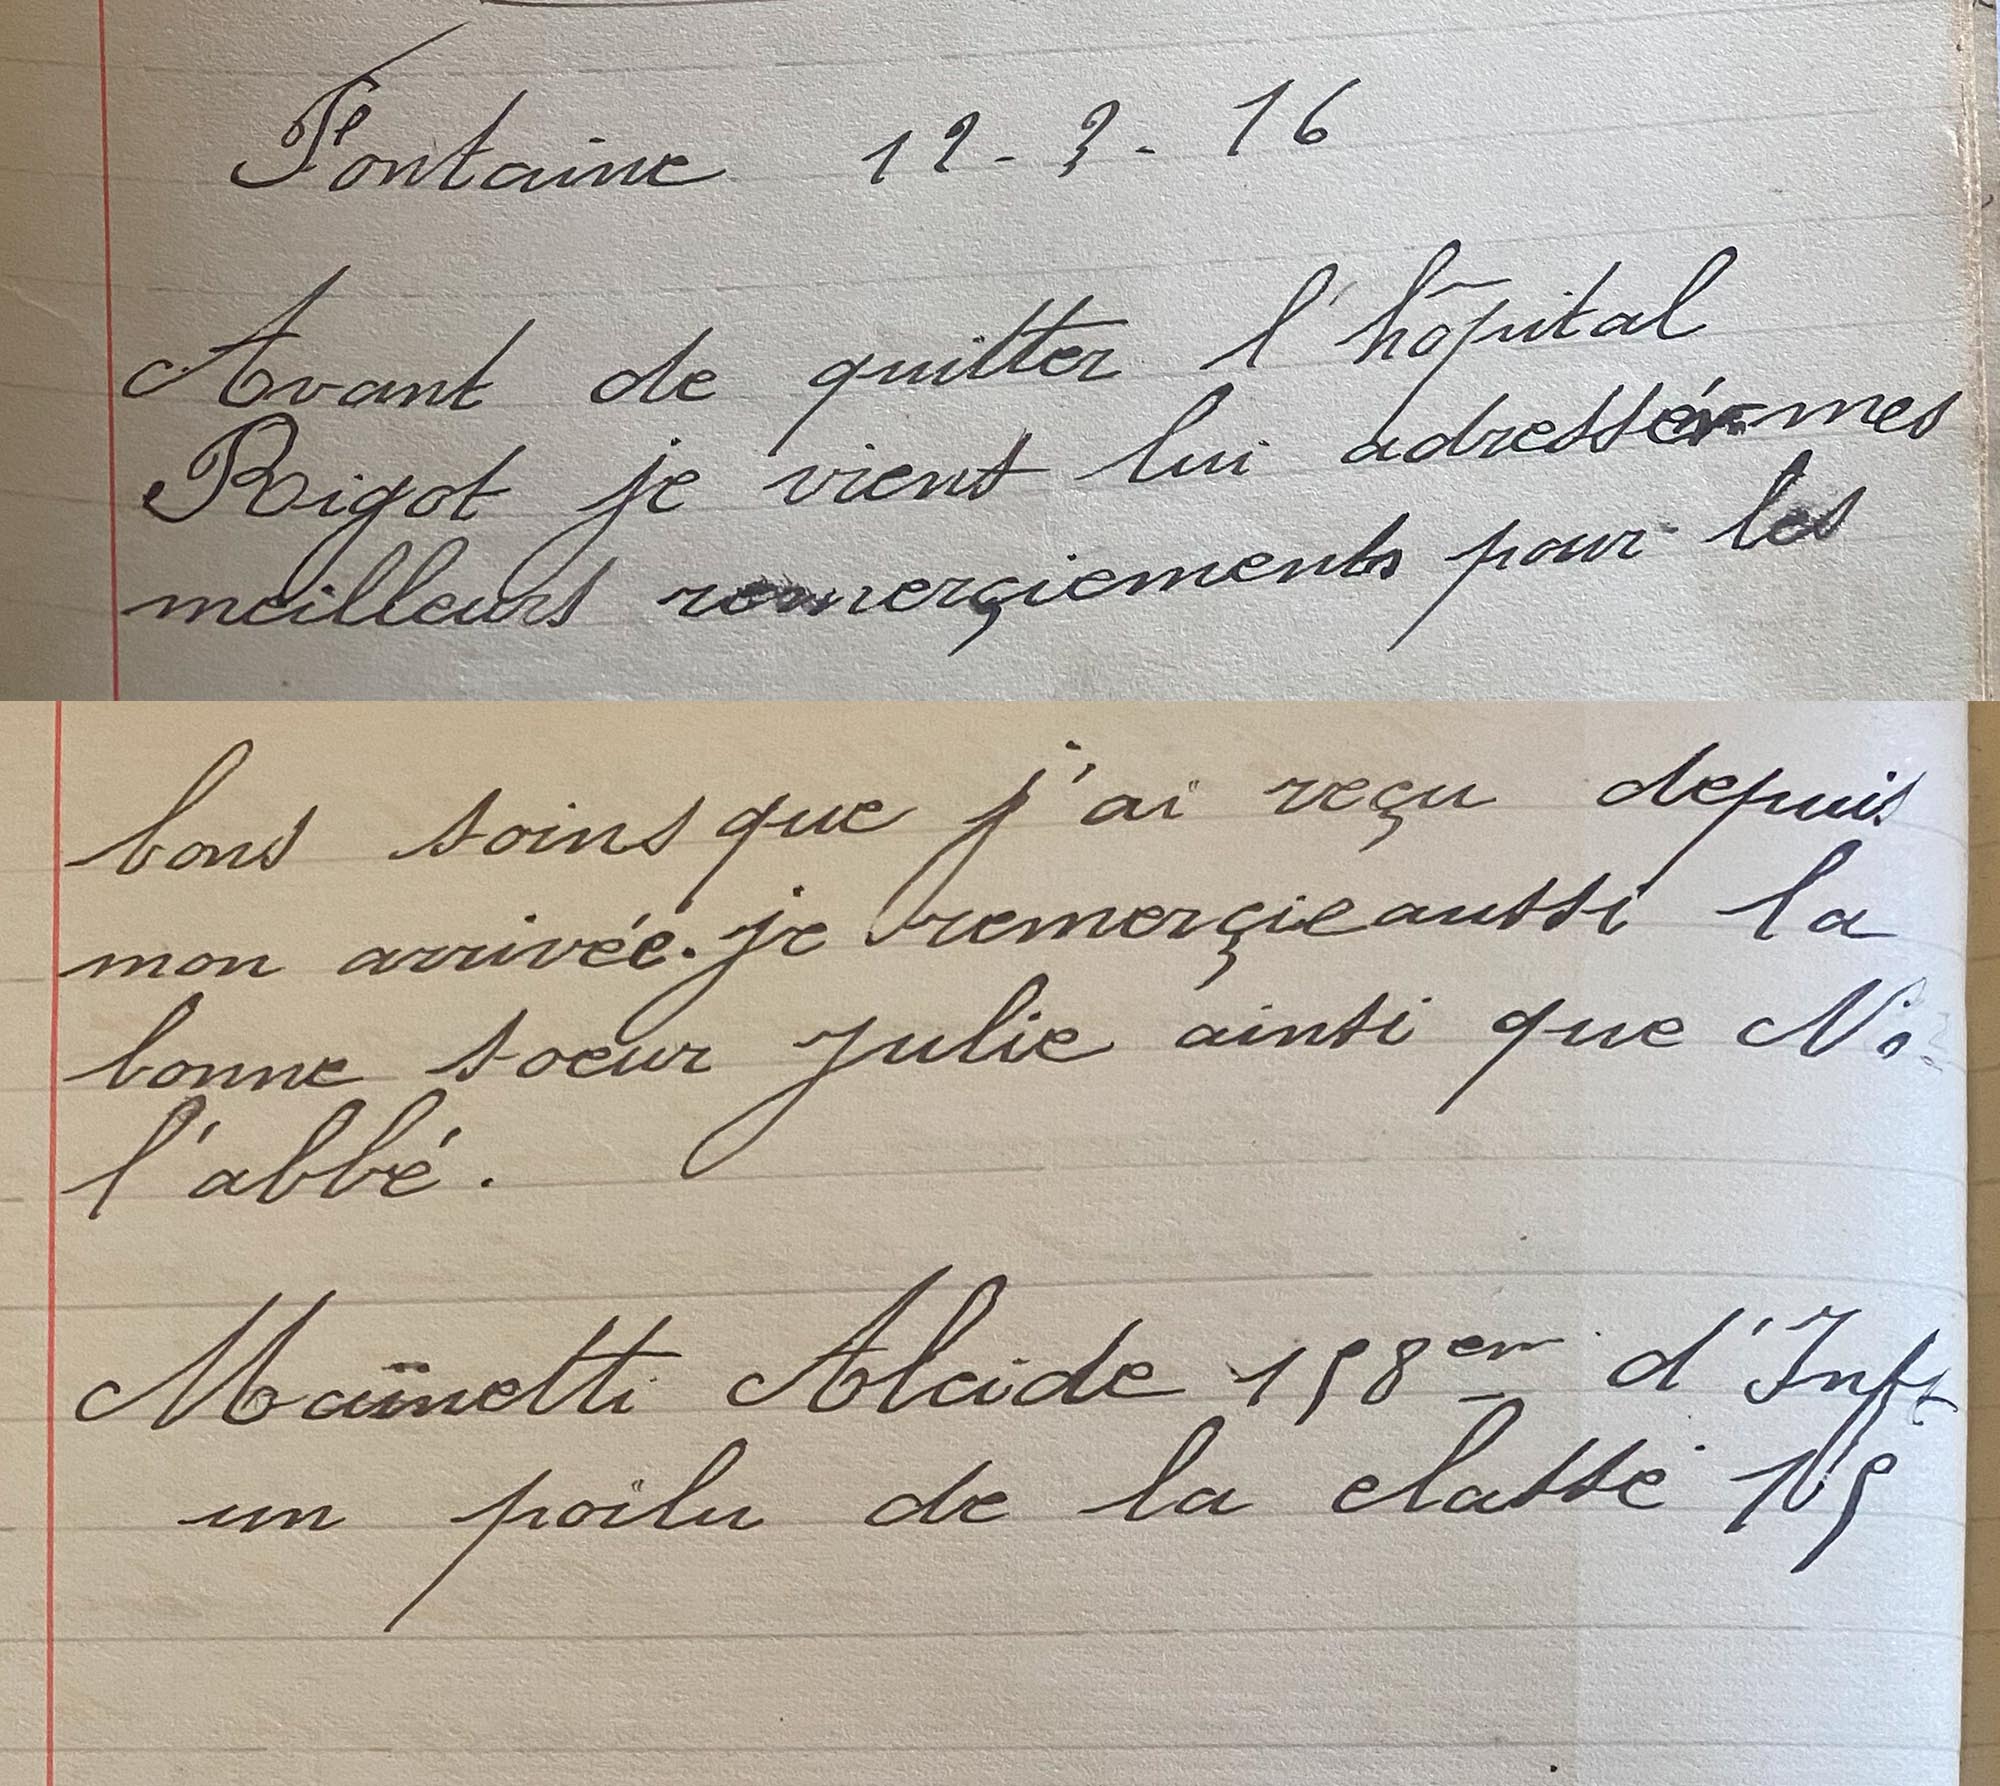 Fontaine 12 - 3 - 16
Avant de quitter l'hôpital
Rigot je vient lui adressér mes
meilleurs remerçiements pour les
bons soins que j'ai reçu depuis
mon arrivée. je remerçie aussi la
bonne soeur Julie ainsi que
l'abbé.
Maïnetti Alcide 158em d'Inft
un poilu de la classe 15